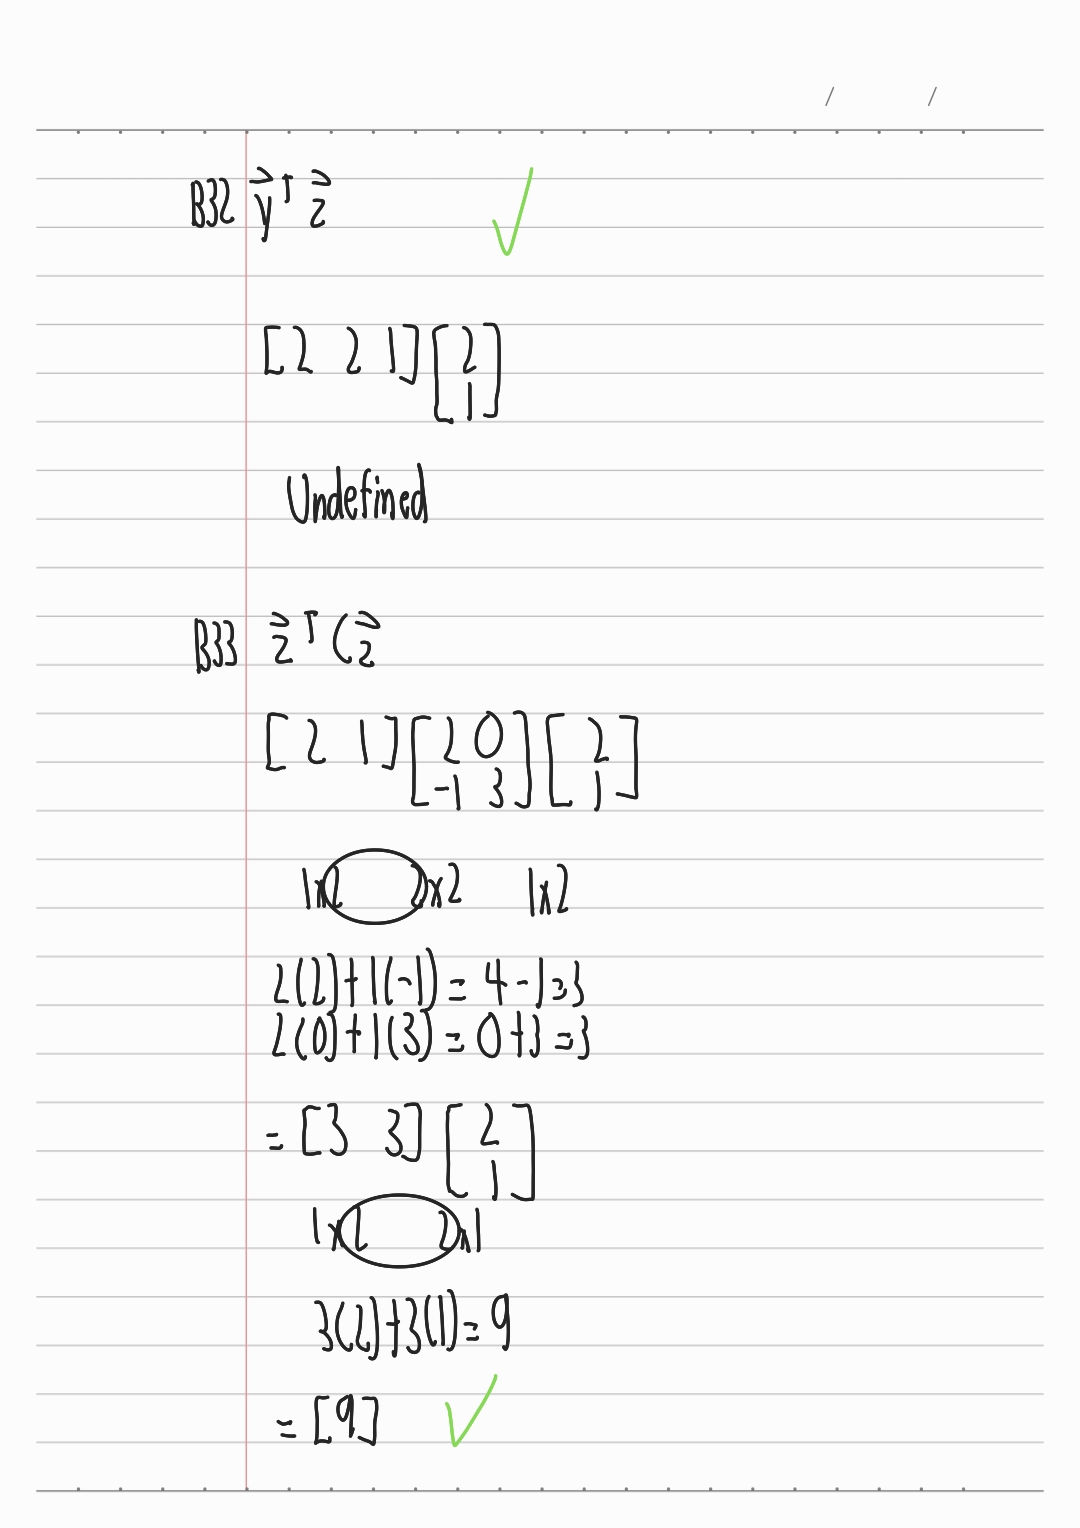 / /
B32 y⃗ᵀ z⃗
[2 2 1] [2
1]
Undefined
B33 z⃗ᵀ C z⃗
[2 1] [2 0
-1 3] [2
1]
1x2 2x2 1x2
2(2)+1(-1) = 4-1=3
2(0)+1(3) = 0+3=3
= [3 3] [2
1]
1x2 2x1
3(2)+3(1) = 9
= [9]